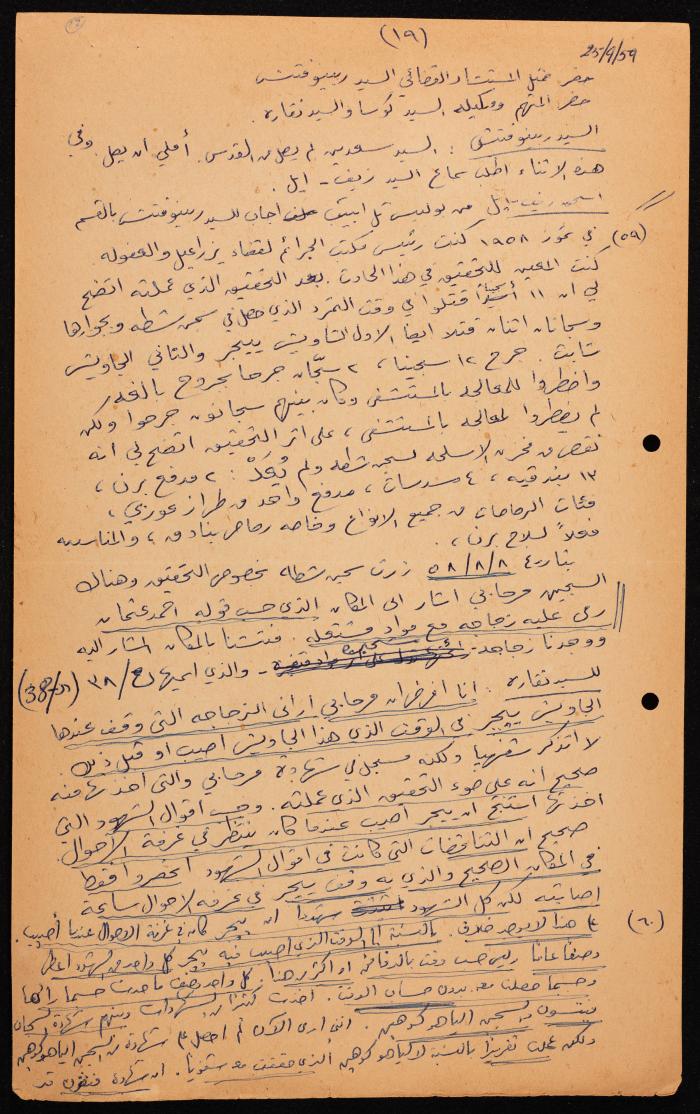 (١٩)
25/9/59
حضر ممثل المستشار القضائي السيد ربينوفتش
حضر المتهم ووكيله السيد كوسا والسيد نقاره
السيد ربينوفتش : السيد سعدين لم يصل من القدس. أملي ان يصل. وفي
هذه الاثناء اطلب سماع السيد زئيف - ايل .
اسمي زئيف - ايل من بوليس تل ابيب اجاب للسيد ربينوفتش بالقسم
(٥٩) في تموز ١٩٥٨ كنت رئيس مكتب الجرائم لقضاء يزراعيل والعفوله
كنت المعين للتحقيق في هذا الحادث. بعد التحقيق الذي عملته اتضح
لي ان ١١ سجينا قتلوا في وقت التمرد الذي حصل في سجن شطه وبجوارها
وسجانان اثنان قتلا ايضا الاول الشاويش ييجر والثاني الجاويش
ثابت. جرح ١٢ سجينا ، ٢ سجّان جرحا بجروح بالغه
واضطروا للمعالجه بالمستشفى وكان بينهم سجانون جرحوا ولكن
لم يضطروا لمعالجه بالمستشفى ، على اثر التحقيق اتضح لي انه
نقص من مخزن الاسلحه لسجن شطه ولم تُعَدْ : ٢ مدفع برن ،
١٣ بندقيه ، ٤ مسدسات ، مدفع واحد من طراز عوزي ،
مئات الرصاصات من جميع الانواع وخاصه رصاص بنادق ، والمناسبه
فعلاً لسلاح برن .
بتاريخ ٥٨/٨/٨ زرت سجن شطه بخصوص التحقيق وهناك
السجين مرحابي اشار الى المكان الذي حسب قوله احمد عثمان
رمى عليه زجاجه مع مواد مشتعله. فتشنا بالمكان المشار اليه
ووجدنا زجاجه - والذي اسميها ٣٨/ (38/ת)
للسيد نقاره : انا افرض ان مرحابي اراني الزجاجه التي وقف عندها
الجاويش ييجر في الوقت الذي هذا الجاويش اصيب او قبل ذلك.
لا اتذكر شفهيا ولكنه مسجل في شهادة مرحابي والتي اخذتها منه
صحيح انه على ضوء التحقيق الذي عملته. وحسب اقوال الشهود التي
اخذتها استنتج ان ييجر اصيب عندما كان ينتظر في غرفة الاحوال.
صحيح ان التناقضات التي كانت في اقوال الشهود فقط
في المكان الصحيح والذي به وقف ييجر في غرفه الاحوال ساعة
اصابته لكن كل الشهود شهدوا ان ييجر كان في غرفة الاحوال عندما اصيب.
(٦٠) هذا لا يوجد خلاف. بالنسبة الى الوقت الذي اصيب فيه ييجر كل واحد من الشهود اعطى
وصفا عاما وليس حسب وقت بالدقائق او اكثر هذا كل واحد وصف ما حدث حسبما رآها
وحسبما حصلت معه بدون حساب الوقت. اخذت كثيرا من الشهادات ومنهم شهادة السجان
من السجن الياهو كوهين. انني ارى الآن لم احصل على شهادة من السجن الياهو كوهين
ولكن عملت تقريرا بالنسبة لالياهو كوهين الذي حققت معه شفويا. ان شهادة قد